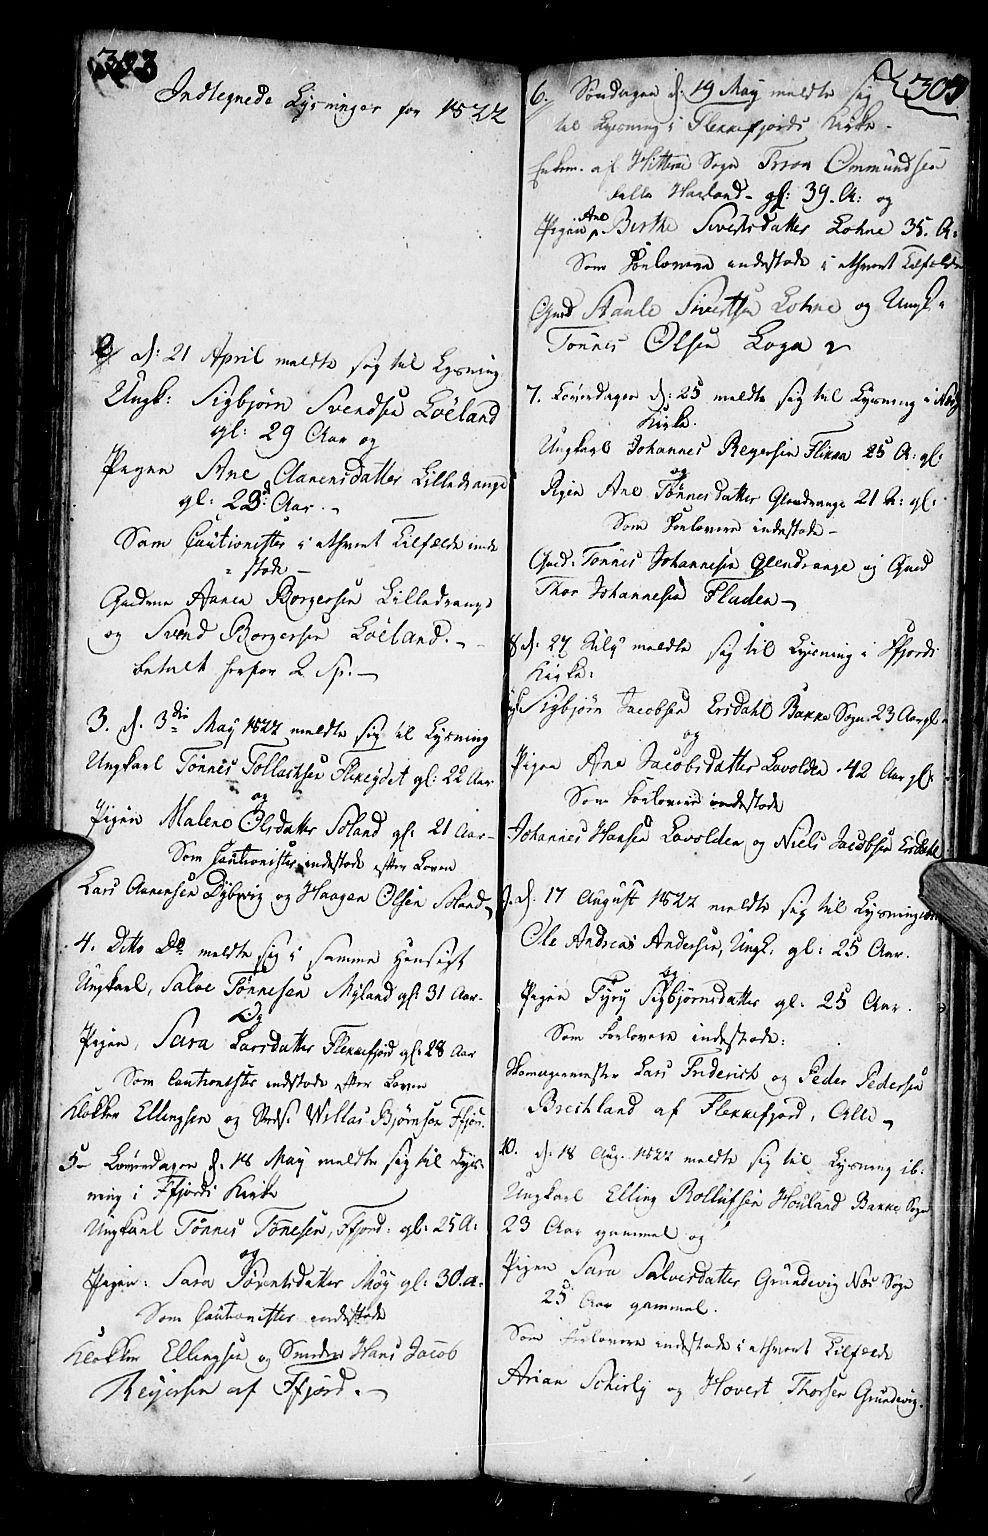 323
Indtegnede Lysninger for 1822
2, d: 21 April meldte sig til Lysning
Ungk: Sigbjørn Svendsen Löeland
gl: 29 Aar og
Pigen Ane Aanensdatter Lilledrange
gl: 23 Aar.
Som Cautionister i ethvert Tilfælde inde
stode
Gudene Aanen Borgersen Lilledrange
og Svend Borgersen Löeland.
betalt herfor 2 Sp.
3. d. 3die May 1822 meldte sig til Lysning
Ungkarl Tønnes Tollacksen gl: 22 Aar
og
Pigen Malene Olsdatter Aoland gl: 21 Aar
Som Cautionister indestode efter Loven
Lars Aanensen Dybwig og Haagen Olsen
4. Ditto Do meldte sig i samme Hensigt
Ungkarl, Salve Tønnesen Myland gl: 31 Aar.
Og
Pigen, Sara Larsdatter Flekkefjord gl: 28 Aar
Som Cautionister indstode efter Loven
Klokker Ellingsen og Willas Bjørnsen Ffjor.
5 Løverdagen d. 18 May meldte sig til Lys-
ning i Ffjords Kirke
Ungkarl Tønnes Tönesen, Ffjord. gl: 25 A:
og
Pigen: Sara Sörentsdatter Møy gl: 30 A.
Som Cautionister indestode
Klokker Ellingsen og Hans Jacob
Reyersen af Ffjord.
305
6. Søndagen d: 19 May meldte sig
til Lysning i Flekkefjords Kirke.
Enkem. af Hitterøe Sogn Troen Ommundsen
Hauland gl: 39. A: og
Pigen Ane Berthe Sivertsdatter Lohne 35. A:
Som Forlovere indestode i ethvert Tilfælde
Gmd Staale Sivertsen Lohne og Ungk.
Tønnes Olsen Loga
7. Løverdagen d: 25 meldte sig til Lysning i
Kirke.
Ungkarl Johannes Reyersen Flikka 25 A: gl:
og
Pigen Ane Tønnesdatter Glendrange 21 A: gl:
Som Forlovere indestode
Gmd. Tönnes Johannesen Glendrange og Gmd
Thor Johannesen Fladen
8 d. 27 July meldte sig til Lysning i Ffjords
Kirke:
Sigbjørn Jacobsen Ersdahl Bakke Sogn 23 Aar gl
og
Pigen Ane Jacobsdatter Lavolden 42 Aar gl:
Som Forlovere indestode
Johannes Hansen Lavolden og Niels Jacobsen Ersdahl
9. d. 17 August 1822 meldte sig til Lysning
Ole Andreas Andersen, Ungk. gl: 25 Aar.
og
Pigen Tyry Sigbjørnsdatter gl: 25 Aar.
Som Forlovere indestode:
Lars Friderich og Peder Pedersen
Breihland af Flekkefjord, Alle
10. d: 18 Aug. 1822 meldte sig til Lysning ib:
Ungkarl Elling Rolluvsen Houland Bakke Sogn
23 Aar gammel og
Pigen Sara Salvesdatter Grundevig Næs Sogn
25 Aar gammel.
Som Forlovere indestode i ethvert Tilfælde
Arian Schirly og Hovert Thorsen Grundewig.